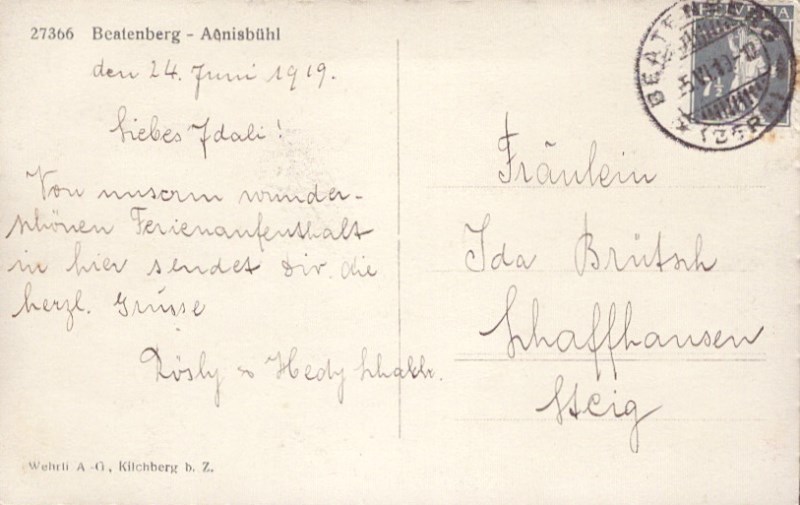 27366 Beatenberg - Aenisbühl
den 24. Juni 1919.
Liebes Idali!
Von unserm wunder-
schönen Ferienaufenthalt
in hier sendet Dir die
herzl. Grüsse
Rösly & Hedy
Wehrli A.-G., Kilchberg b. Z.
HELVETIA
7½
BEATENBERG
(BERN)
Fräulein
Ida Brütsch
Schaffhausen
Steig